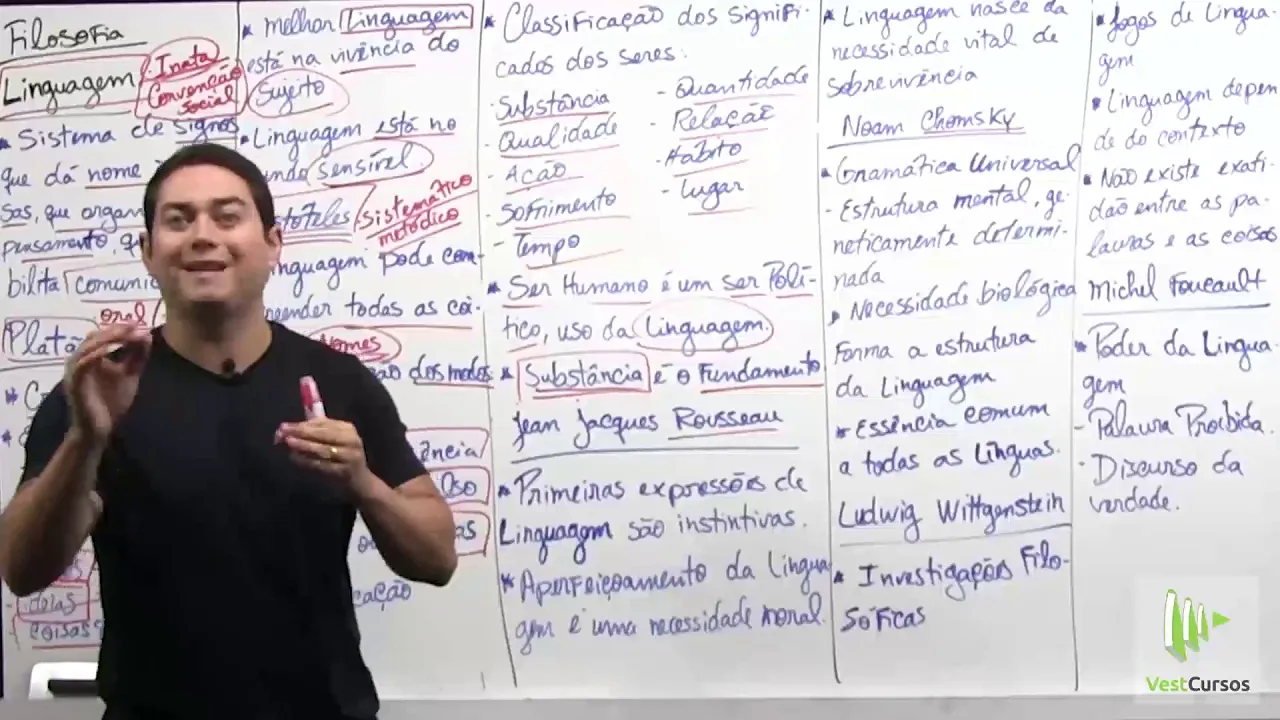 Filosofia
Linguagem
Inata
Convenção
social
* Sistema de signos
que dá nome
sas, que organ
pensamento, q
bilita comunic
oral
Platã
ideias
coisas
* melhor Linguagem
está na vivência do
Sujeito
* Linguagem está no
undo sensível.
Sistemático
metódico
istoteles
inguagem pode com-
reender todas as coi-
nomes
ão dos modos
ência
lso
as
cação
* Classificação dos signifi-
cados dos seres:
- Substância
- Qualidade
- Ação
- Sofrimento
- Tempo
- Quantidade
- Relação
- Hábito
- Lugar
* Ser Humano é um ser Polí-
tico, uso da Linguagem.
* Substância é o Fundamento
Jean Jacques Rousseau
* Primeiras expressões de
Linguagem são instintivas.
* Aperfeiçoamento da Lingua
gem é uma necessidade moral.
* Linguagem nasce da
necessidade vital de
sobrevivência
Noam Chomsky
* Gramática Universal
- Estrutura mental, ge-
neticamente determi-
nada
* Necessidade biológica
Forma a estrutura
da Linguagem
* Essência comum
a todas as Línguas.
Ludwig Wittgenstein
* Investigações Filo-
sóficas
* Jogos de Lingua-
gem
* Linguagem depen
de do contexto
* Não existe exati
dão entre as pa-
lavras e as coisas
Michel Foucault
* Poder da Lingua-
gem
- Palavra Proibida.
- Discurso da
verdade.
VestCursos